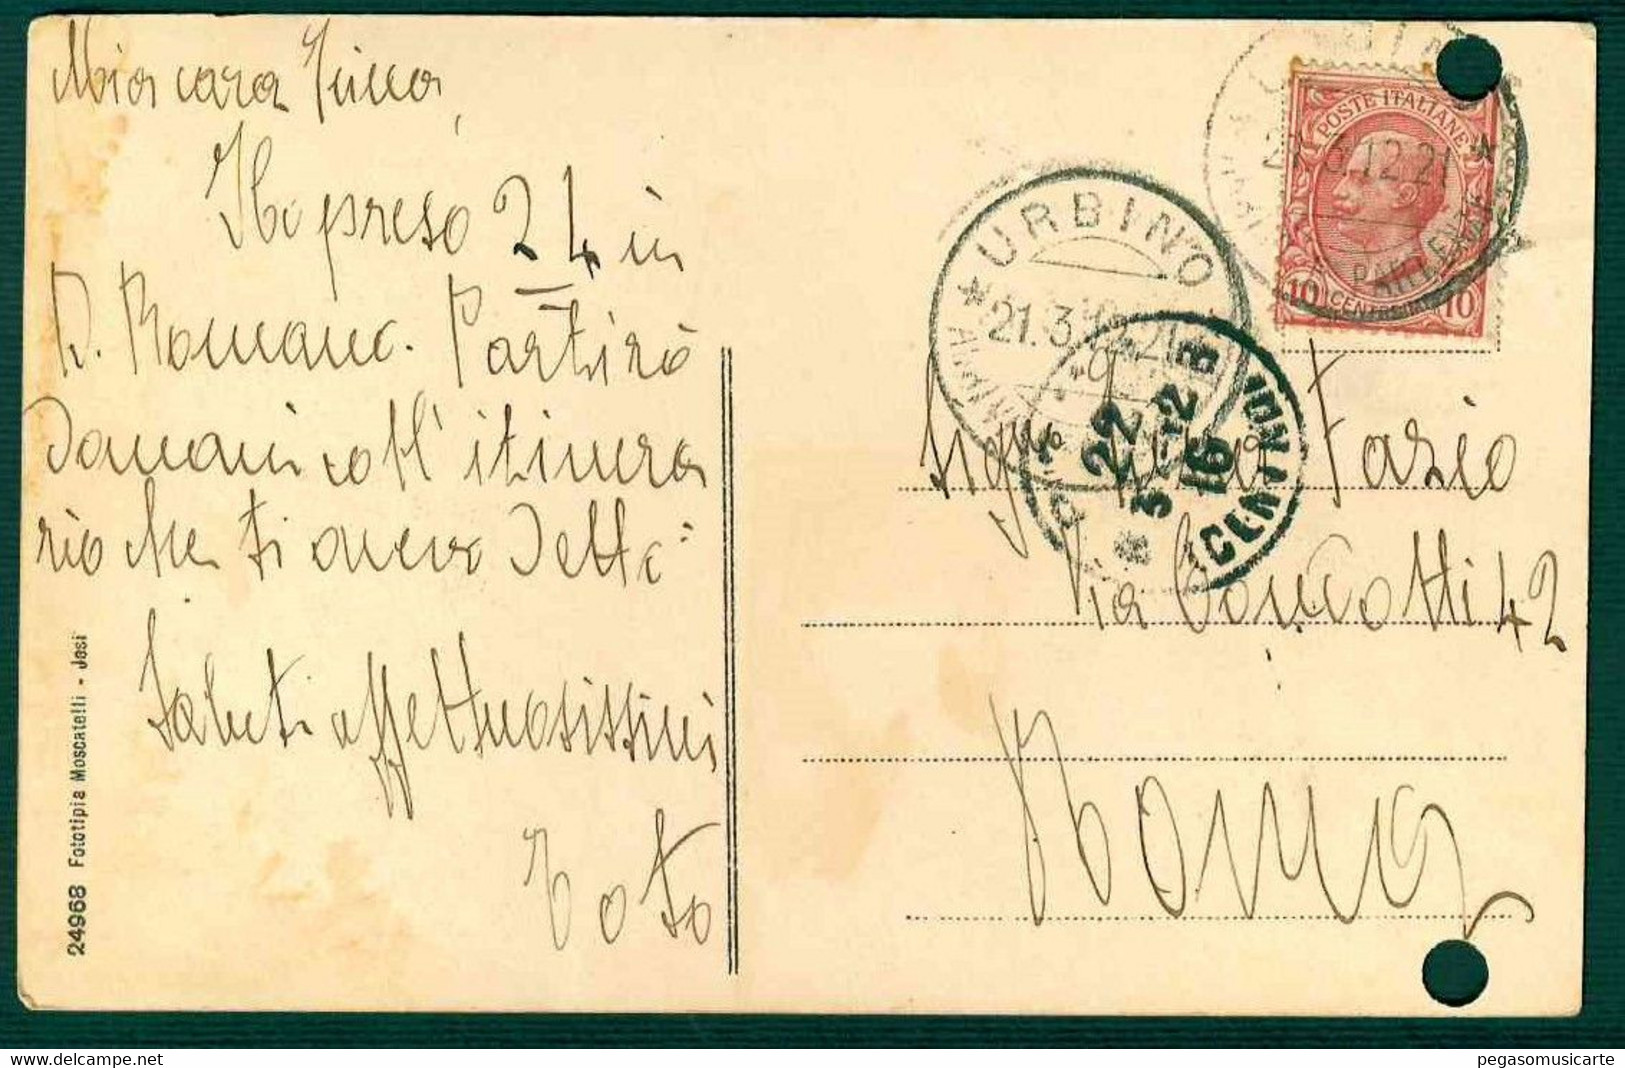 Mia cara
Ho preso 24 in
D. Romano. Partirò
domani coll' itinera
rio che ti avevo detto
Saluti affettuosissimi
Totò
24968 Fototipia Moscatelli - Jesi
POSTE ITALIANE
10 CENTESIMI 10
12 21
PARTENZA
* URBINO
21.3
22
3-12
16
CENTRO
Fazio
Via 42
Roma
pegasomusicarte